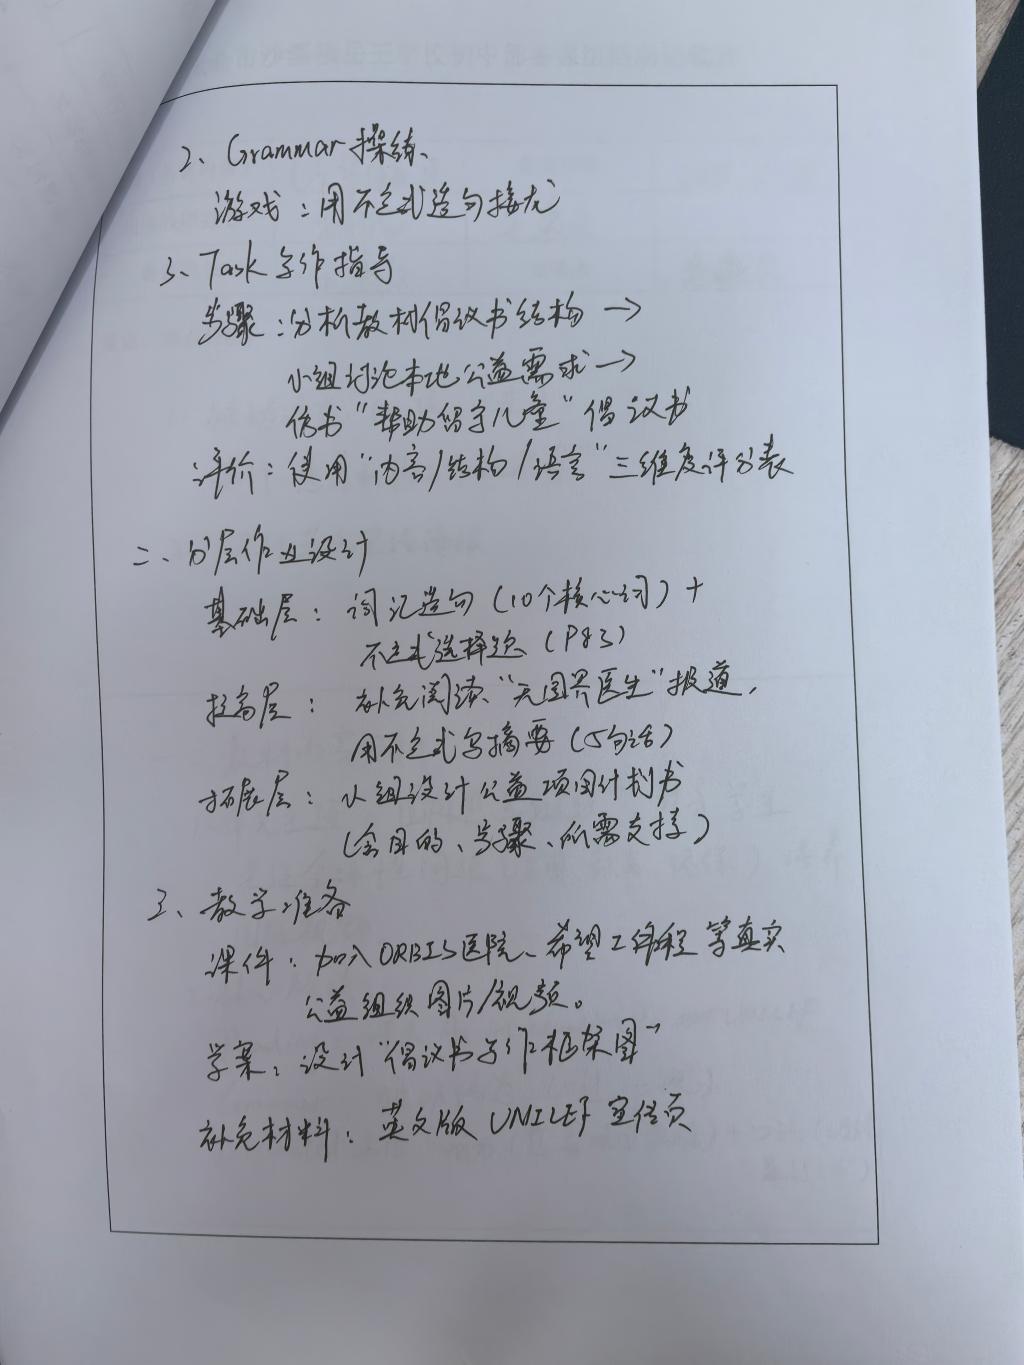 2、Grammar 操练、
游戏：用不定式造句接龙
3、Task 写作指导
步骤：分析教材倡议书结构 →
小组讨论本地公益需求 →
仿书“帮助留守儿童”倡议书
评价：使用“内容/结构/语言”三维度评分表
二、分层作业设计
基础层：词汇造句（10个核心词）+
不定式选择题（P83）
拉高层：补充阅读“无国界医生”报道，
用不定式写摘要（5句话）
拓展层：小组设计公益项目计划书
（含目的、步骤、所需支持）
三、教学准备
课件：加入ORBIS医院、希望工程等真实
公益组织图片/视频。
学案：设计“倡议书写作框架图”
补充材料：英文版 UNICEF 宣传页